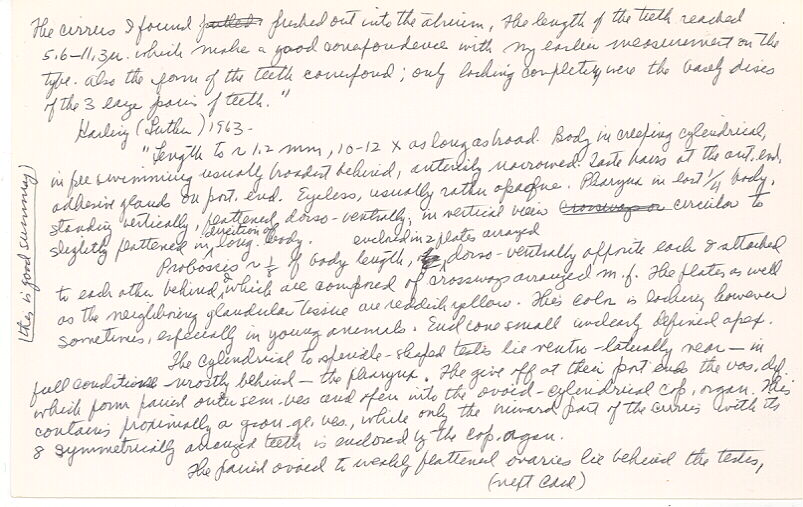 The cirrus I found pulled pushed out into the atrium, the length of the teeth reached
5.6–11.3µ. which make a good correspondence with my earlier measurement on the
type. also the form of the teeth correspond; only lacking completely were the basely discs
of the 3 large pairs of teeth."
Karling (Luther) 1963 -
"Length to ~ 1.2 mm, 10-12 x as long as broad. Body in creeping cylindrical,
in free swimming usually broadest behind, anteriorly narrowed. Taste hairs at the ant. end,
adhesive glands on post. end. Eyeless, usually rather opaque. Pharynx in last 1/4 body,
standing vertically, flattened dorso-ventrally; in vertical view crossways or circular to
slightly flattened in direction of long. body.
Proboscis ~ 1/5 of body length, enclosed in 2 plates arranged dorso-ventrally opposite each & attached
to each other behind, which are composed of crossways arranged m.f. The plates as well
as the neighboring glandular tissue are reddish yellow. This color is lacking however
sometimes, especially in young animals. End cone small unclearly defined apex.
The cylindrical to spindle-shaped testis lie ventro-laterally near – in
full condition – mostly behind – the pharynx. The give off at their post ends the vas. def.
which form paired outer sem. ves and open into the ovoid-cylindrical cop. organ. This
contains proximally a gran. gl. ves., while only the inward part of the cirrus with its
8 symmetrically arranged teeth is enclosed by the cop. organ.
The paired ovoid to weakly flattened ovaries lie behind the testes,
(next card)
(this is good summary)